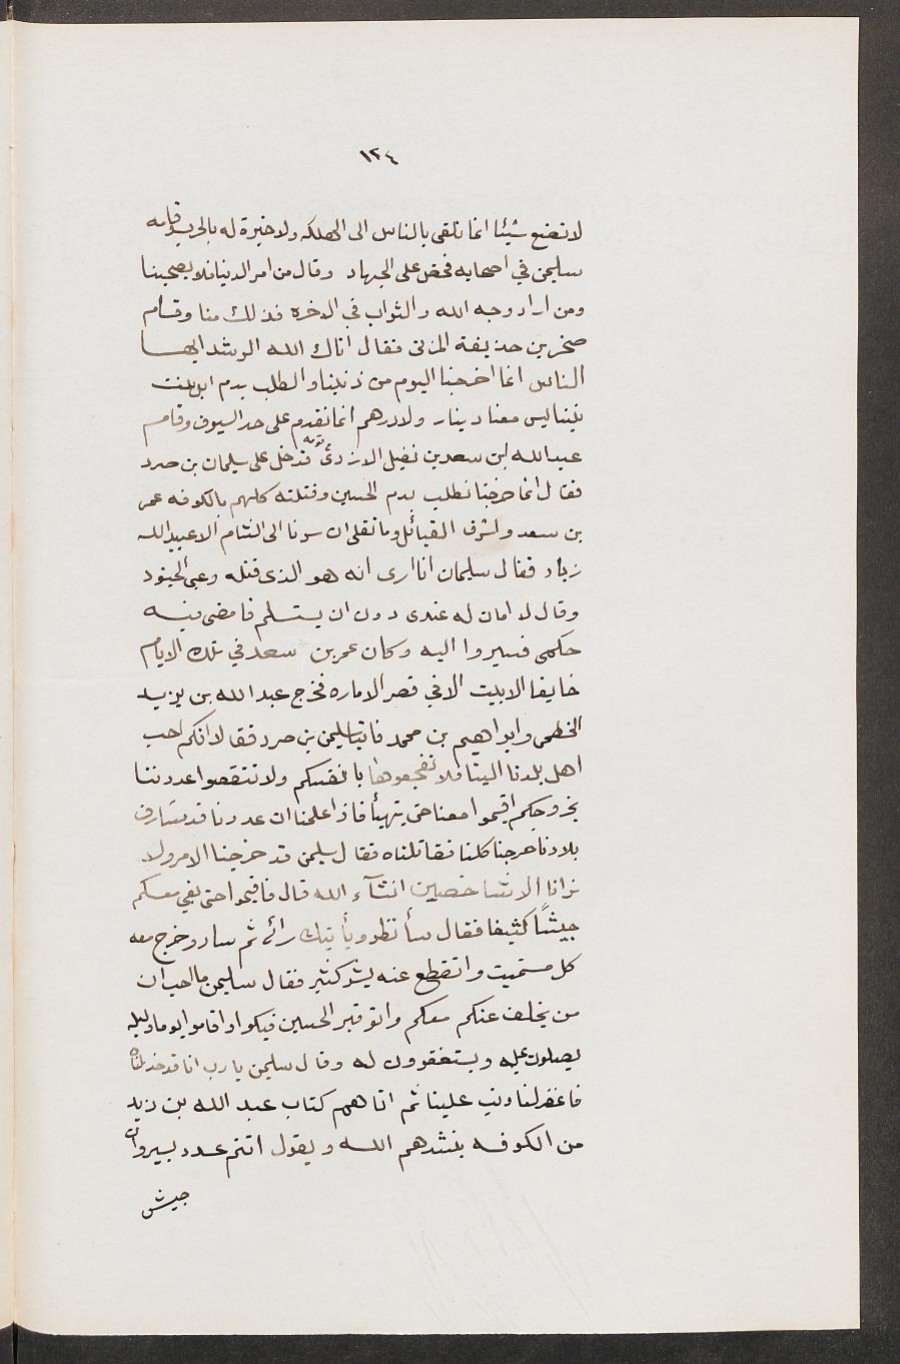 ١٢٤
لا تضع شيئا انما تلقى بالناس الى الهلكه ولا خيرة له بالحرب فقامه
سليمن في اصحابه فحض على الجهاد وقال من امر الدنيا فلا يصحبنا
ومن اراد وجه الله والثواب في الاخرة فذلك منا وقام
صخر بن حذيفة المزنى فقال اتاك الله الرشد ايها
الناس انما اخرجنا اليوم من ذنبنا والطلب بدم ابن بنت
نبينا ليس معنا دينار ولا درهم انما نقدم على حد السيوف وقام
عبد الله بن سعد بن نفيل الازدى قد دخل على سليمان بن صرد
فقال انما خرجنا نطلب بدم الحسين وقتلته كلهم بالكوفه عمر
بن سعد واشرف القبائل وما نقلى ان سرنا الى الشام الا عبيد الله
زياد فقال سليمان انا ارى انه هو الذى قتله وعبى الجنود
وقال لا امان له عندى دون ان يستسلم فامضى فيه
حكمى فسيروا اليه وكان عمر بن سعد في تلك الايام
خايفا لا يبيت الا في قصر الاماره فخرج عبد الله بن يزيد
الخطمى وابراهيم بن محمد فاتيا سليمن بن صرد فقالا انكم احب
اهل بلدنا الينا فلا تفجعوها بانفسكم ولا تنقصوا عددنا
بخروجكم اقيموا معنا حتى يتهيأ فاذا علمنا ان عدونا قد شارف
بلادنا خرجنا كلنا فقاتلناه فقال سليمن قد خرجنا الامر ولا
نرانا الا شاخصين انشآء الله قال فاقيموا حتى نعبي معكم
جيشًا كثيفا فقال سأنظر ويأتيك رائى ثم سار وخرج معه
كل مستميت وانقطع عنه بشر كثير فقال سليمن ما احب ان
من يخلف عنكم معكم واتو قبر الحسين فبكوا واقاموا يوما وليله
يصلون عليه ويستغفرون له وقال سليمن يا رب انا قد خذلناه
فاغفر لنا وتب علينا ثم اتاهم كتاب عبد الله بن زيد
من الكوفه ينشدهم الله ويقول انتم عدد يسير وان
جيش